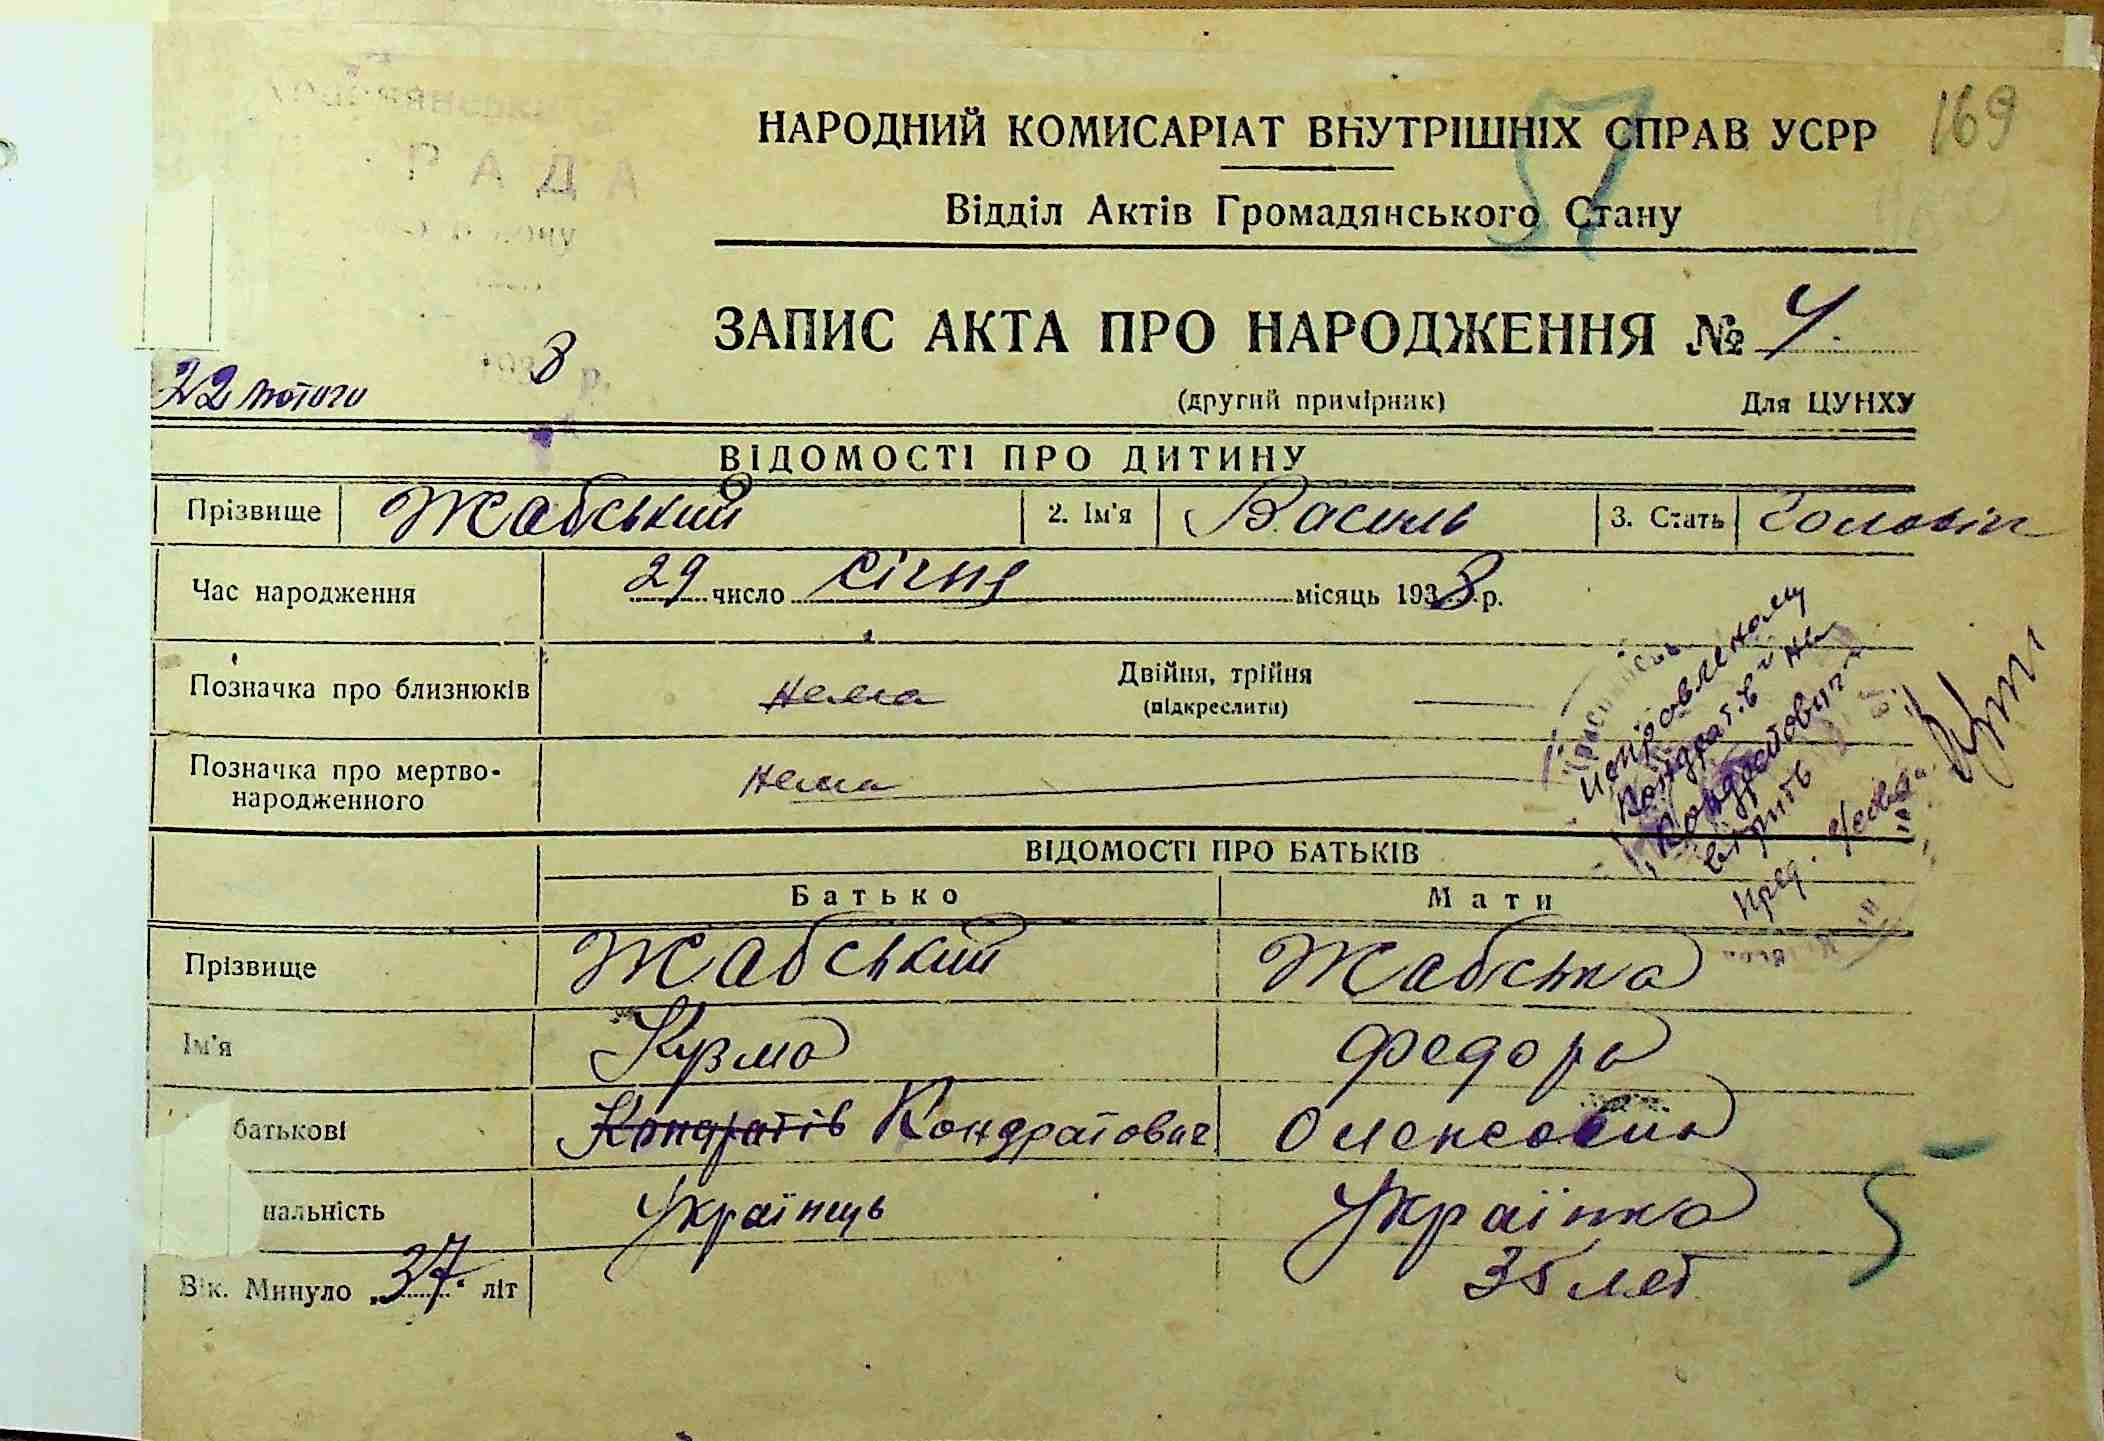 169
57
НАРОДНИЙ КОМИСАРІАТ ВНУТРІШНІХ СПРАВ УСРР
РАДА
Відділ Актів Громадянського Стану
ЗАПИС АКТА ПРО НАРОДЖЕННЯ № 4
22 лютого 193 8 р.
(другий примірник) Для ЦУНХУ
ВІДОМОСТІ ПРО ДИТИНУ
Прізвище Жабський 2. Ім'я Василь 3. Стать Чоловіч
Час народження 29 число січня місяць 1938 р.
Позначка про близнюків нема Двійня, трійня
(підкреслити)
Позначка про мертво-
народженного нема
Исправленому
Кондратів на
Кондратович
вірить
ВІДОМОСТІ ПРО БАТЬКІВ
Батько Мати
Прізвище Жабський Жабська
Ім'я Кузма Федора
батькові Кондратів Кондратович Олексеевна
нальність Українець Українка
5
Вік. Минуло 37 літ 35 лет